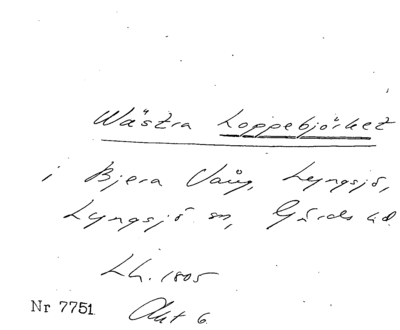 Wästra Loppebjörket
i Bjera Vång, Lyngsjö,
Lyngsjö sn, Gärds hd.
Lh. 1805
Nr 7751. Akt 6